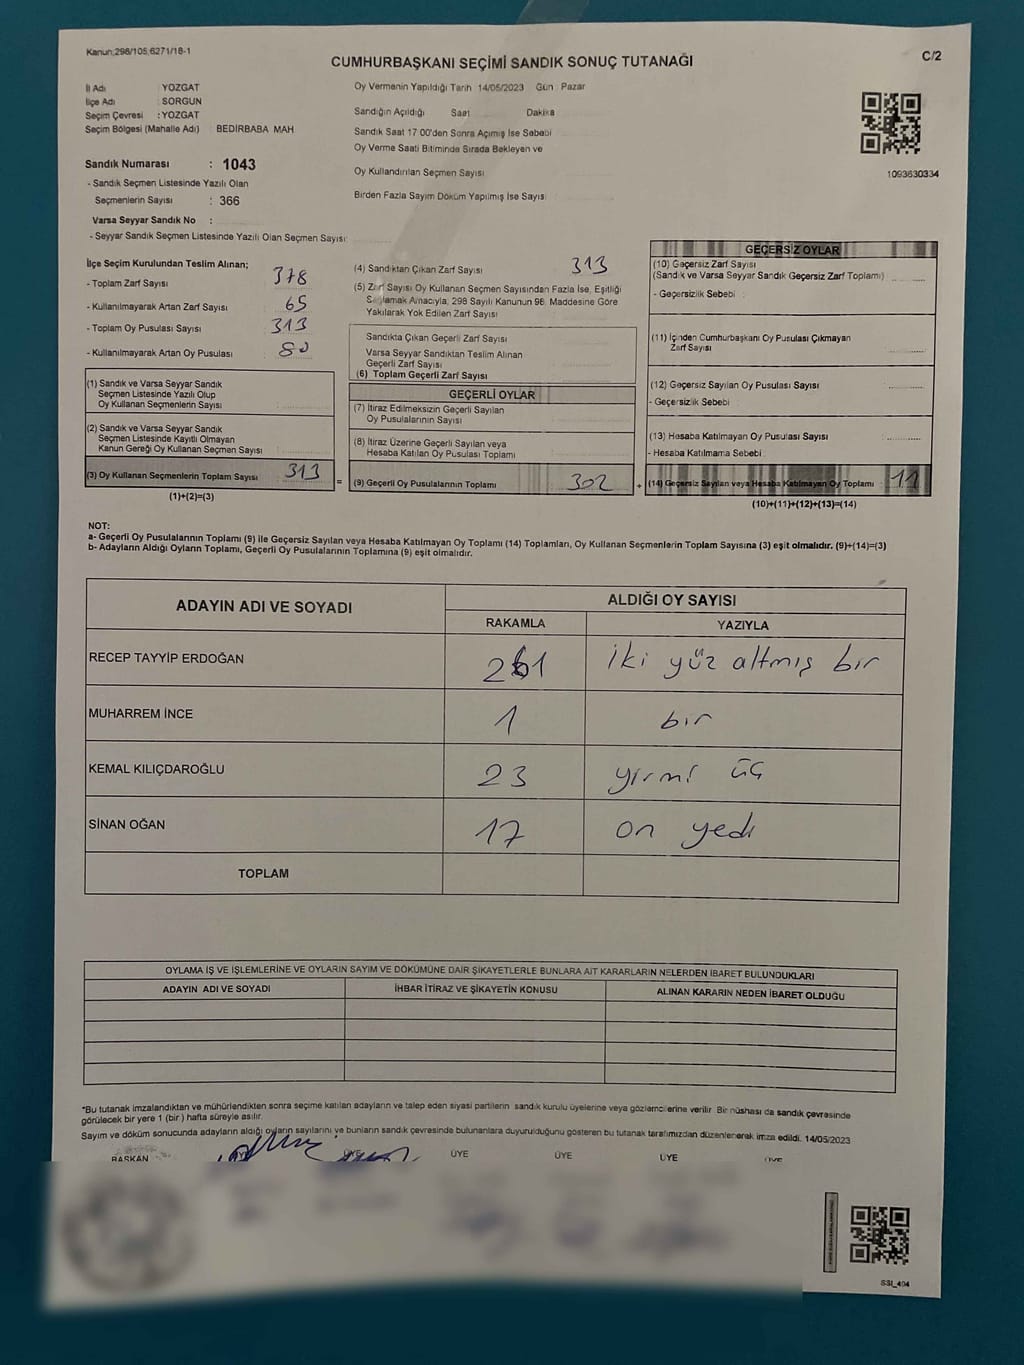 Kanun;298/105,6271/18-1
CUMHURBAŞKANI SEÇİMİ SANDIK SONUÇ TUTANAĞI
C/2
İl Adı : YOZGAT
İlçe Adı : SORGUN
Seçim Çevresi : YOZGAT
Seçim Bölgesi (Mahalle Adı) : BEDİRBABA MAH
Sandık Numarası : 1043
- Sandık Seçmen Listesinde Yazılı Olan
Seçmenlerin Sayısı : 366
Varsa Seyyar Sandık No :
- Seyyar Sandık Seçmen Listesinde Yazılı Olan Seçmen Sayısı:
Oy Vermenin Yapıldığı Tarih 14/05/2023 Gün : Pazar
Sandığın Açıldığı Saat Dakika
Sandık Saat 17 00'den Sonra Açımış İse Sebebi
Oy Verme Saati Bitiminde Sırada Bekleyen ve
Oy Kullandırılan Seçmen Sayısı
Birden Fazla Sayım Döküm Yapılmış İse Sayısı
1093630334
İlçe Seçim Kurulundan Teslim Alınan;
- Toplam Zarf Sayısı 378
- Kullanılmayarak Artan Zarf Sayısı 65
- Toplam Oy Pusulası Sayısı 313
- Kullanılmayarak Artan Oy Pusulası 80
(1) Sandık ve Varsa Seyyar Sandık
Seçmen Listesinde Yazılı Olup
Oy Kullanan Seçmenlerin Sayısı
(2) Sandık ve Varsa Seyyar Sandık
Seçmen Listesinde Kayıtlı Olmayan
Kanun Gereği Oy Kullanan Seçmen Sayısı
(3) Oy Kullanan Seçmenlerin Toplam Sayısı 313
(1)+(2)=(3)
=
(4) Sandıktan Çıkan Zarf Sayısı 313
(5) Zarf Sayısı Oy Kullanan Seçmen Sayısından Fazla İse, Eşitliği
Sağlamak Amacıyla, 298 Sayılı Kanunun 98. Maddesine Göre
Yakılarak Yok Edilen Zarf Sayısı
Sandıkta Çıkan Geçerli Zarf Sayısı
Varsa Seyyar Sandıktan Teslim Alınan
Geçerli Zarf Sayısı
(6) Toplam Geçerli Zarf Sayısı
GEÇERLİ OYLAR
(7) İtiraz Edilmeksizin Geçerli Sayılan
Oy Pusulalarının Sayısı
(8) İtiraz Üzerine Geçerli Sayılan veya
Hesaba Katılan Oy Pusulası Toplamı
(9) Geçerli Oy Pusulalarının Toplamı 302
+
GEÇERSİZ OYLAR
(10) Geçersiz Zarf Sayısı
(Sandık ve Varsa Seyyar Sandık Geçersiz Zarf Toplamı)
- Geçersizlik Sebebi :
(11) İçinden Cumhurbaşkanı Oy Pusulası Çıkmayan
Zarf Sayısı
(12) Geçersiz Sayılan Oy Pusulası Sayısı
- Geçersizlik Sebebi :
(13) Hesaba Katılmayan Oy Pusulası Sayısı
- Hesaba Katılmama Sebebi :
(14) Geçersiz Sayılan veya Hesaba Katılmayan Oy Toplamı 11
(10)+(11)+(12)+(13)=(14)
NOT:
a- Geçerli Oy Pusulalarının Toplamı (9) ile Geçersiz Sayılan veya Hesaba Katılmayan Oy Toplamı (14) Toplamları, Oy Kullanan Seçmenlerin Toplam Sayısına (3) eşit olmalıdır. (9)+(14)=(3)
b- Adayların Aldığı Oyların Toplamı, Geçerli Oy Pusulalarının Toplamına (9) eşit olmalıdır.
ADAYIN ADI VE SOYADI
ALDIĞI OY SAYISI
RAKAMLA YAZIYLA
RECEP TAYYİP ERDOĞAN 261 iki yüz altmış bir
MUHARREM İNCE 1 bir
KEMAL KILIÇDAROĞLU 23 yirmi üç
SİNAN OĞAN 17 on yedi
TOPLAM
OYLAMA İŞ VE İŞLEMLERİNE VE OYLARIN SAYIM VE DÖKÜMÜNE DAİR ŞİKAYETLERLE BUNLARA AİT KARARLARIN NELERDEN İBARET BULUNDUKLARI
ADAYIN ADI VE SOYADI İHBAR İTİRAZ VE ŞİKAYETİN KONUSU ALINAN KARARIN NEDEN İBARET OLDUĞU
*Bu tutanak imzalandıktan ve mühürlendikten sonra seçime katılan adayların ve talep eden siyasi partilerin sandık kurulu üyelerine veya gözlemcilerine verilir. Bir nüshası da sandık çevresinde
görülecek bir yere 1 (bir) hafta süreyle asılır.
Sayım ve döküm sonucunda adayların aldığı oyların sayılarını ve bunların sandık çevresinde bulunanlara duyurulduğunu gösteren bu tutanak tarafımızdan düzenlenerek imza edildi. 14/05/2023
BAŞKAN ÜYE ÜYE ÜYE ÜYE ÜYE ÜYE
SSI_404